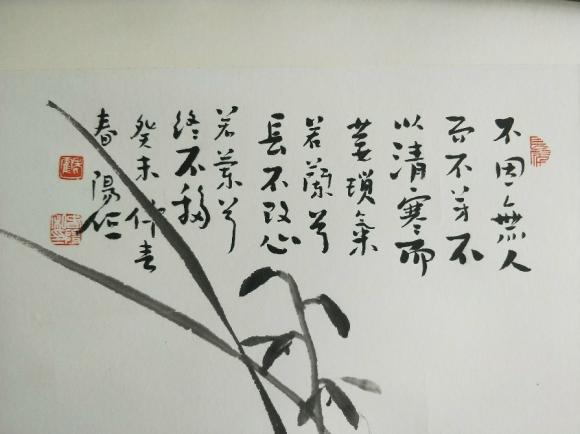 不因無人
而不芳不
以清寒而
萎瑣氣
若蘭兮
長不改心
若蘭兮
終不移
癸未仲春
春陽